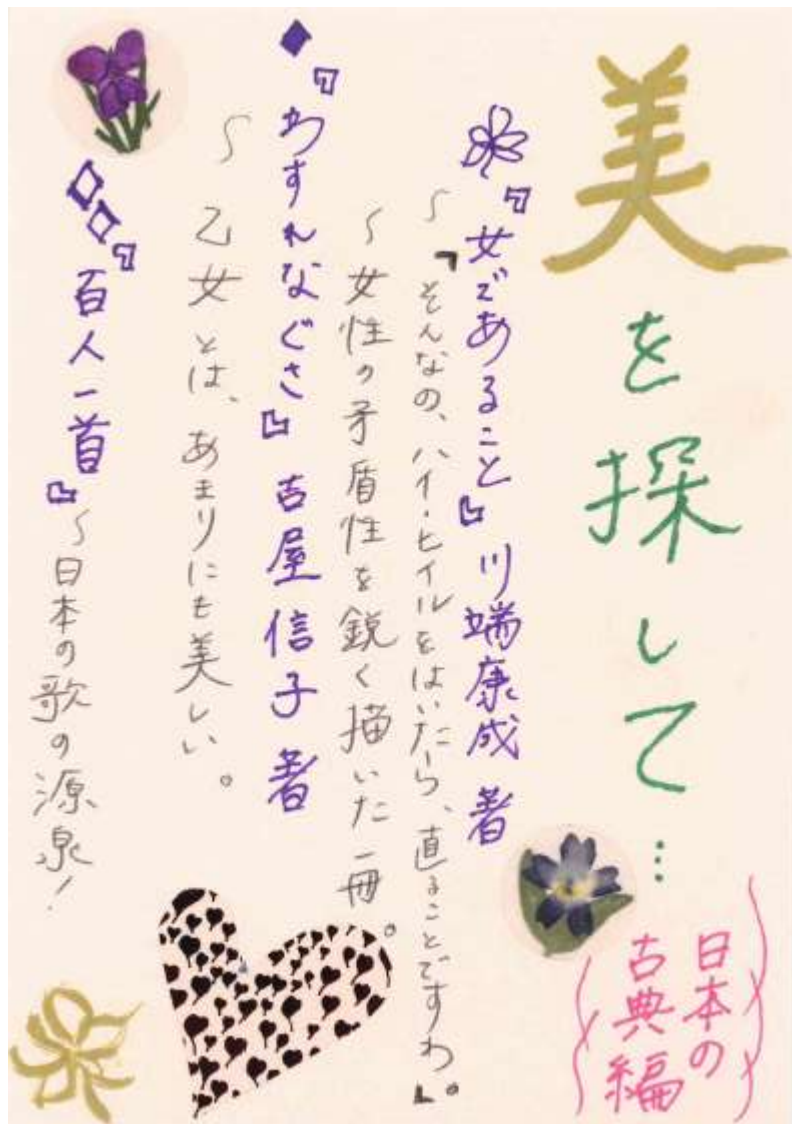 美を探して…
日本の
古典編
『女であること』川端康成 著
～「そんなの、ハイ・ヒイルをはいたら、直ることですわ」。
～女性の矛盾性を鋭く描いた一冊。
『わすれなぐさ』吉屋信子 著
～乙女とは、あまりにも美しい。
『百人一首』～日本の歌の源泉！